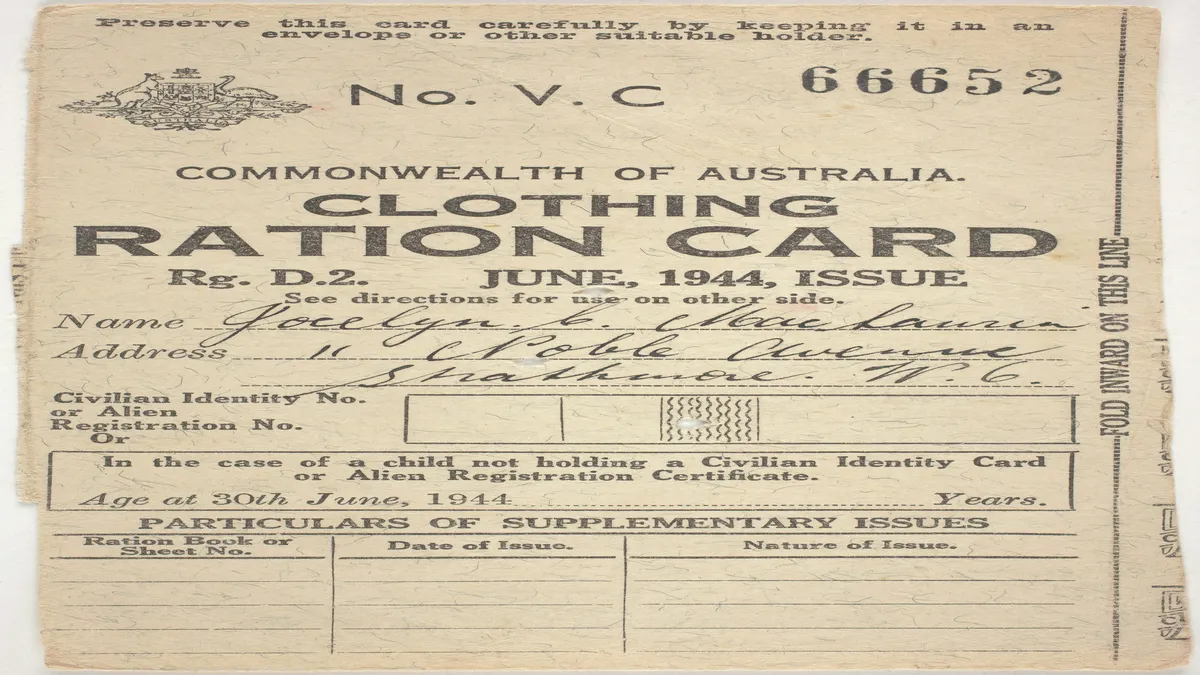 Preserve this card carefully by keeping it in an
envelope or other suitable holder.
No. V. C 66652
COMMONWEALTH OF AUSTRALIA.
CLOTHING
RATION CARD
Rg. D.2. JUNE, 1944, ISSUE
See directions for use on other side.
Name Jocelyn. C. MacLaurin
Address 11 Noble Avenue
Strathmore. W. 6.
Civilian Identity No.
or Alien
Registration No.
Or
In the case of a child not holding a Civilian Identity Card
or Alien Registration Certificate.
Age at 30th June, 1944 Years.
PARTICULARS OF SUPPLEMENTARY ISSUES
Ration Book or
Sheet No.
Date of Issue.
Nature of Issue.
FOLD INWARD ON THIS LINE